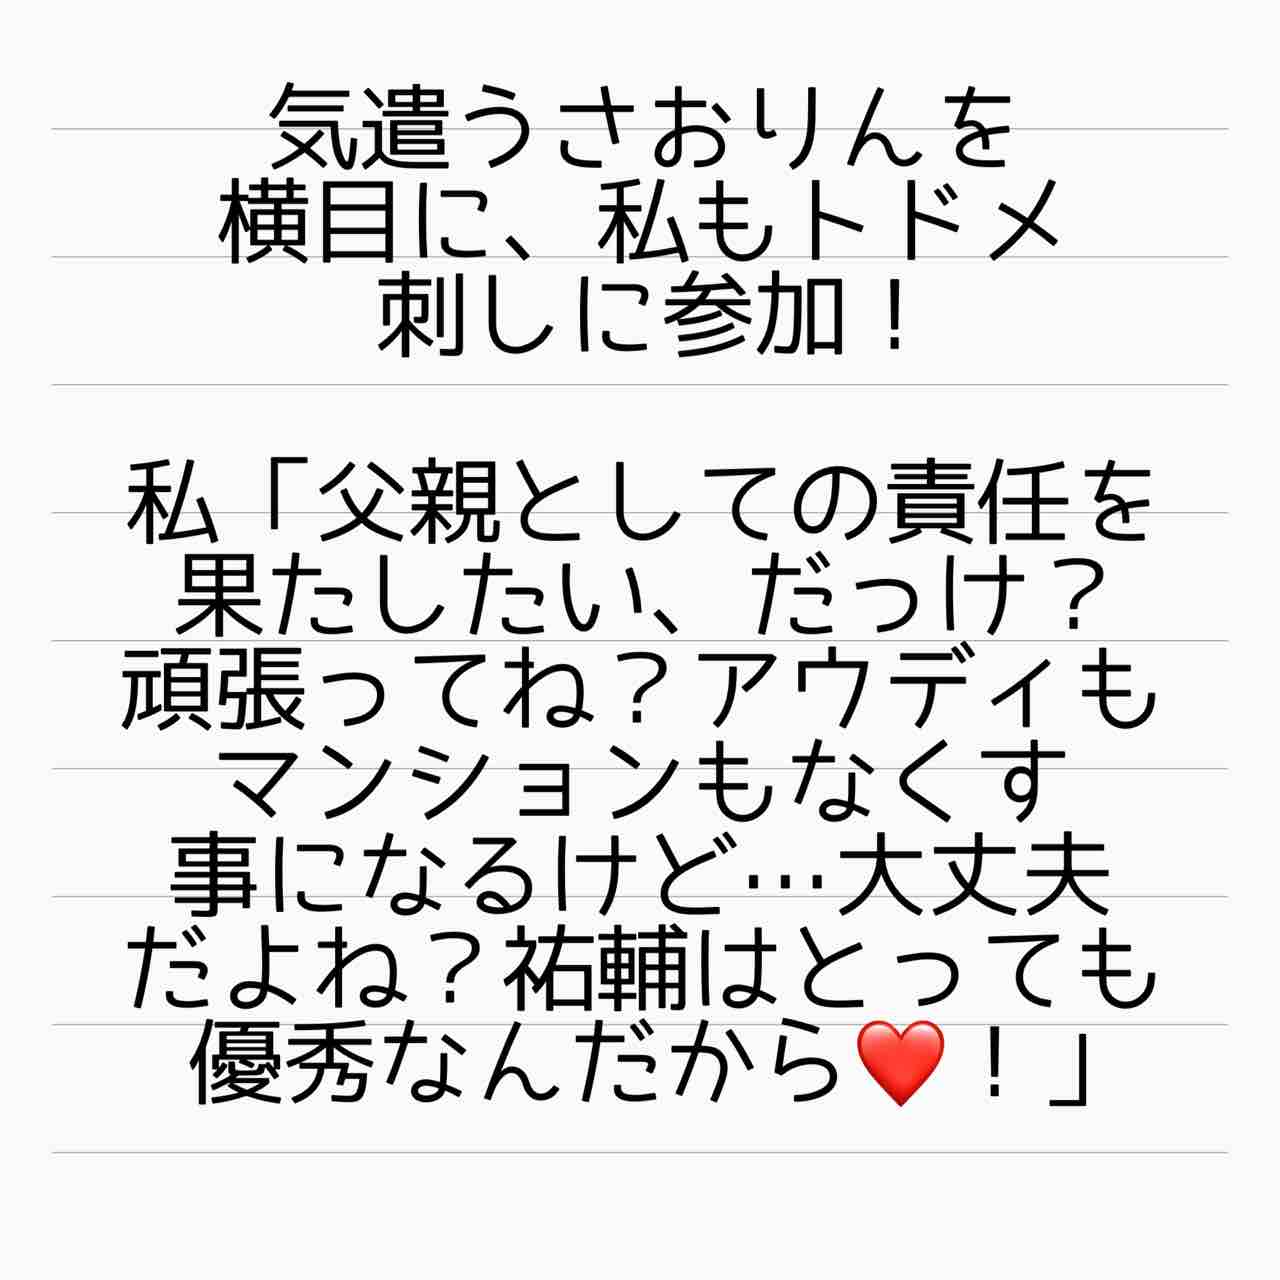 気遣うさおりんを
横目に、私もトドメ
刺しに参加！
私「父親としての責任を
果たしたい、だっけ？
頑張ってね？アウディも
マンションもなくす
事になるけど…大丈夫
だよね？祐輔はとっても
優秀なんだから❤️！」